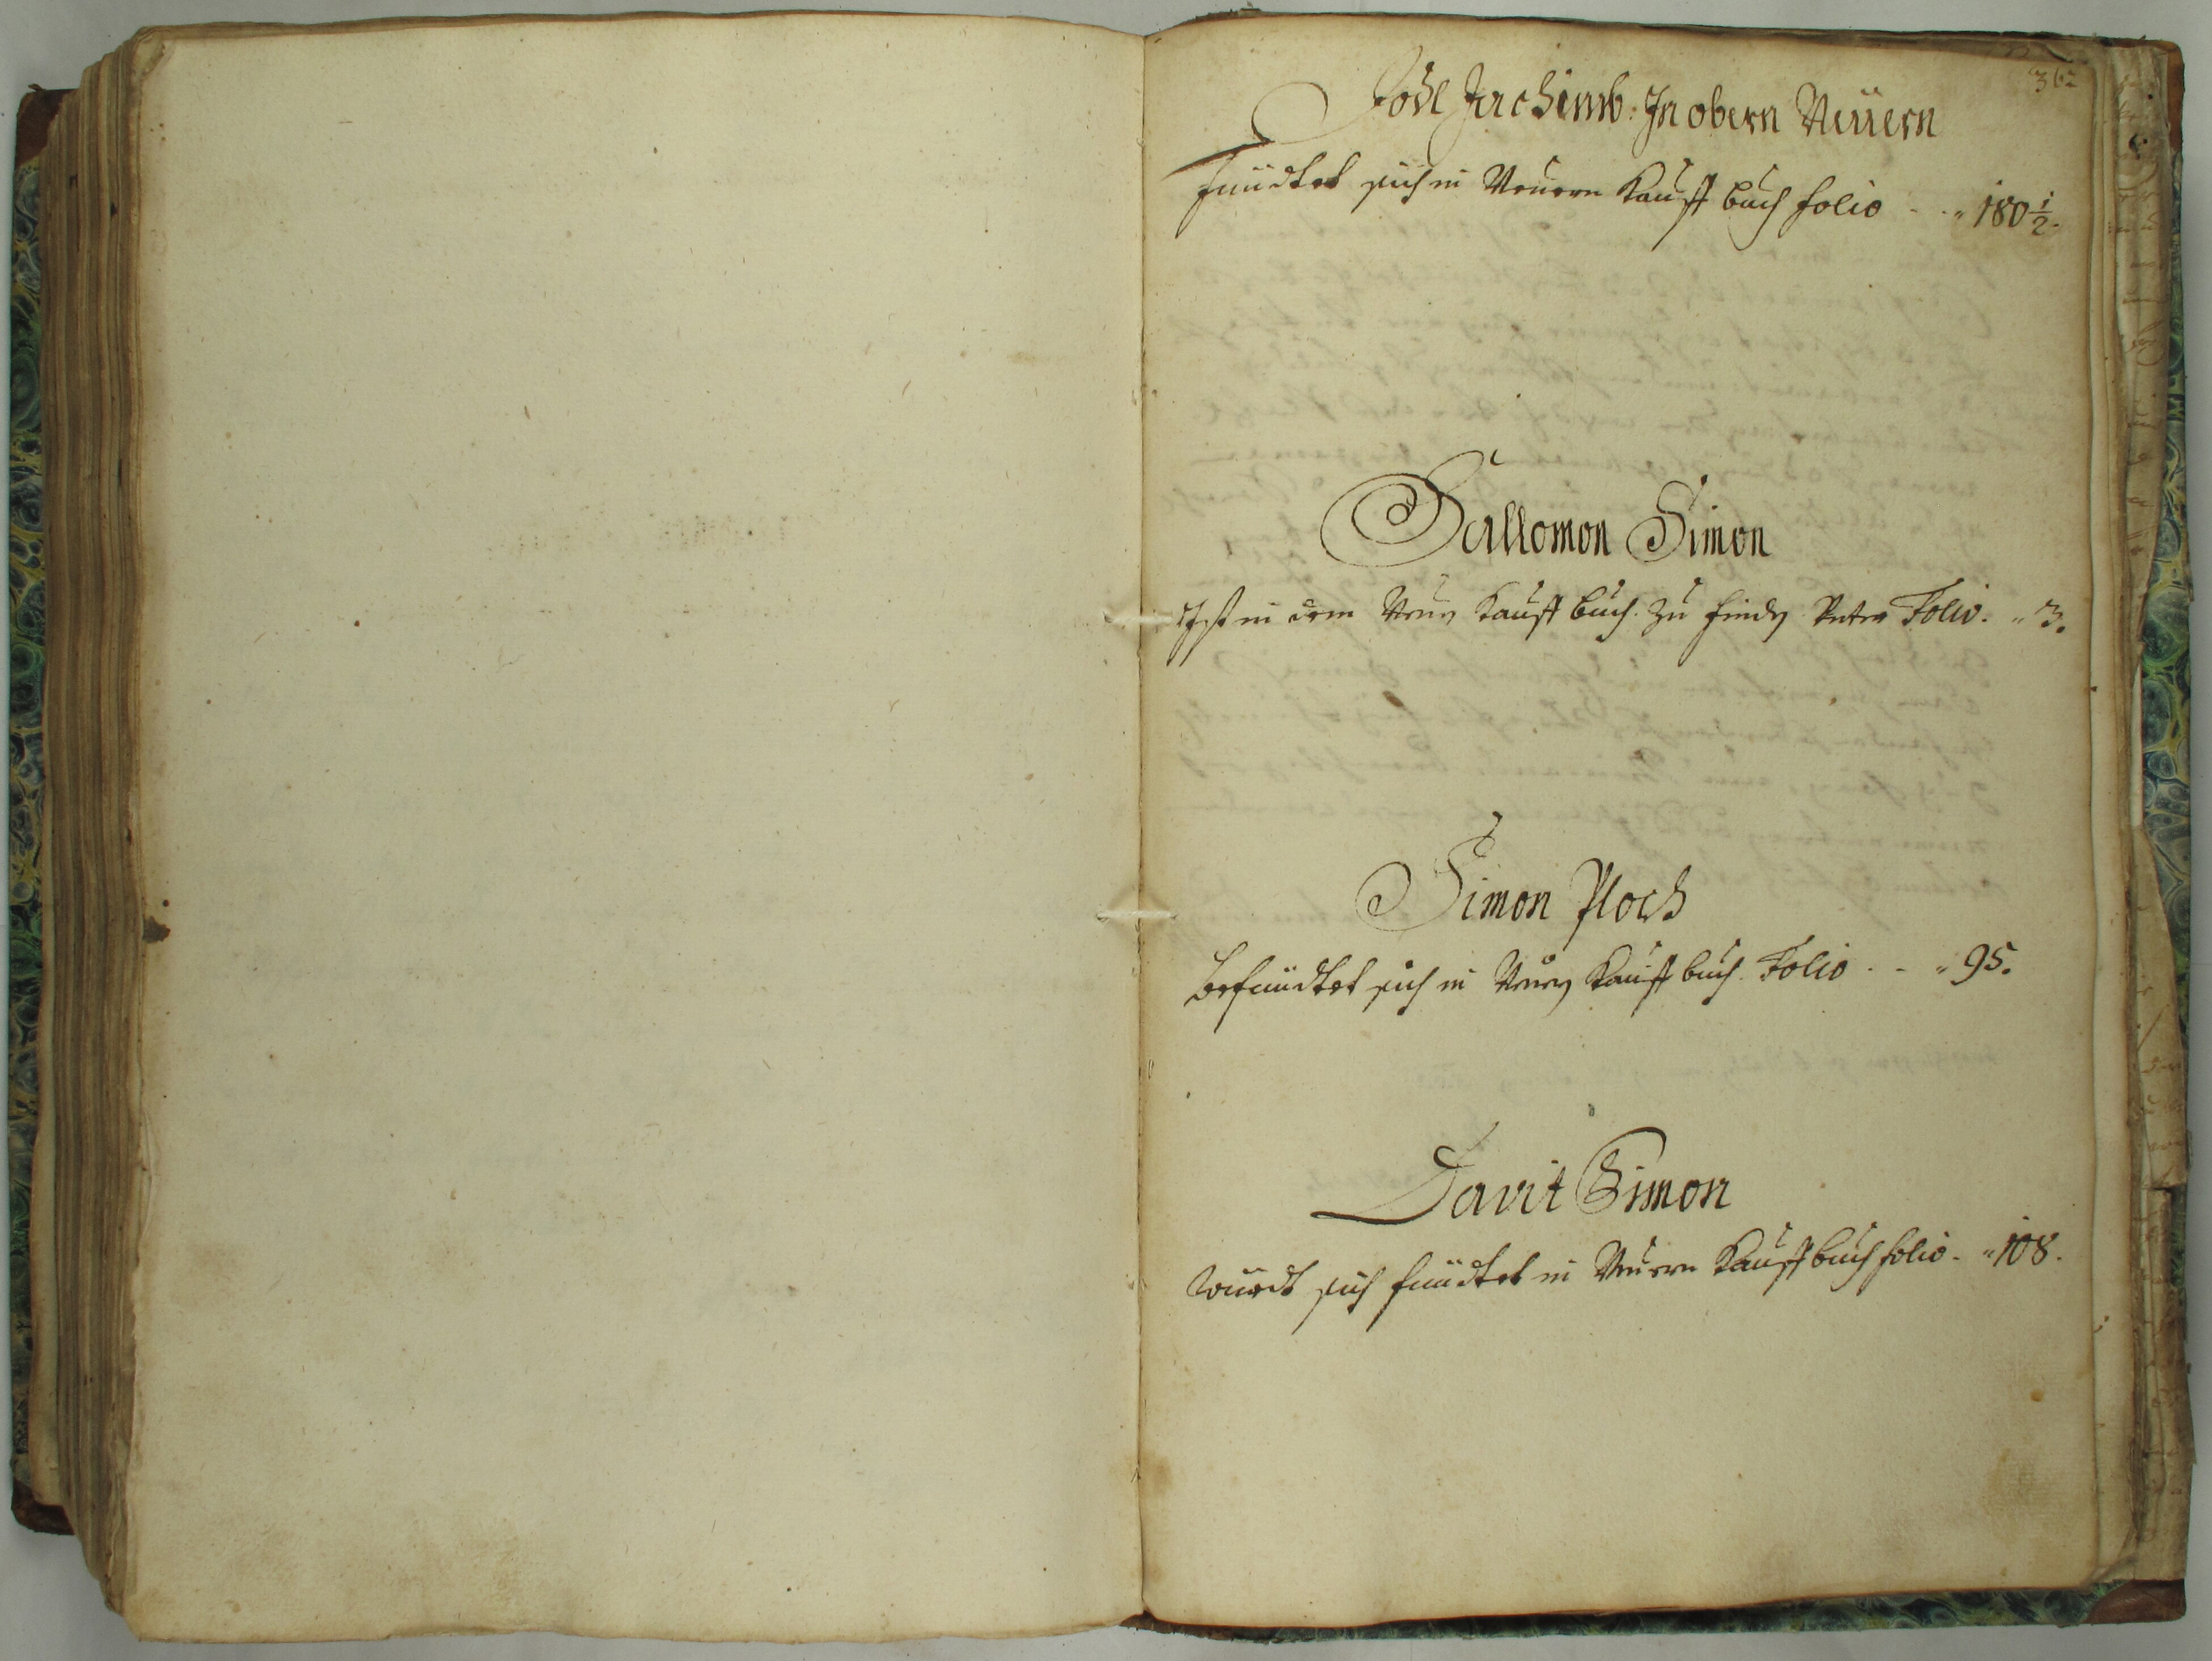 362
Jodl Jachimb: In obern Neüern
fündtet sich in Neuern Kauff buch folio - - " 180 1/2.
Sallomon Simon
Ist in dem Neuen Kauff buch zu finden Unter Folio. " 3.
Simon Ploch
Befündtet sich in Neuen Kauff buch. Folio - - " 95.
Davit Simon
Würdt sich fündtet in Neuern Kauff buch folio - " 108.